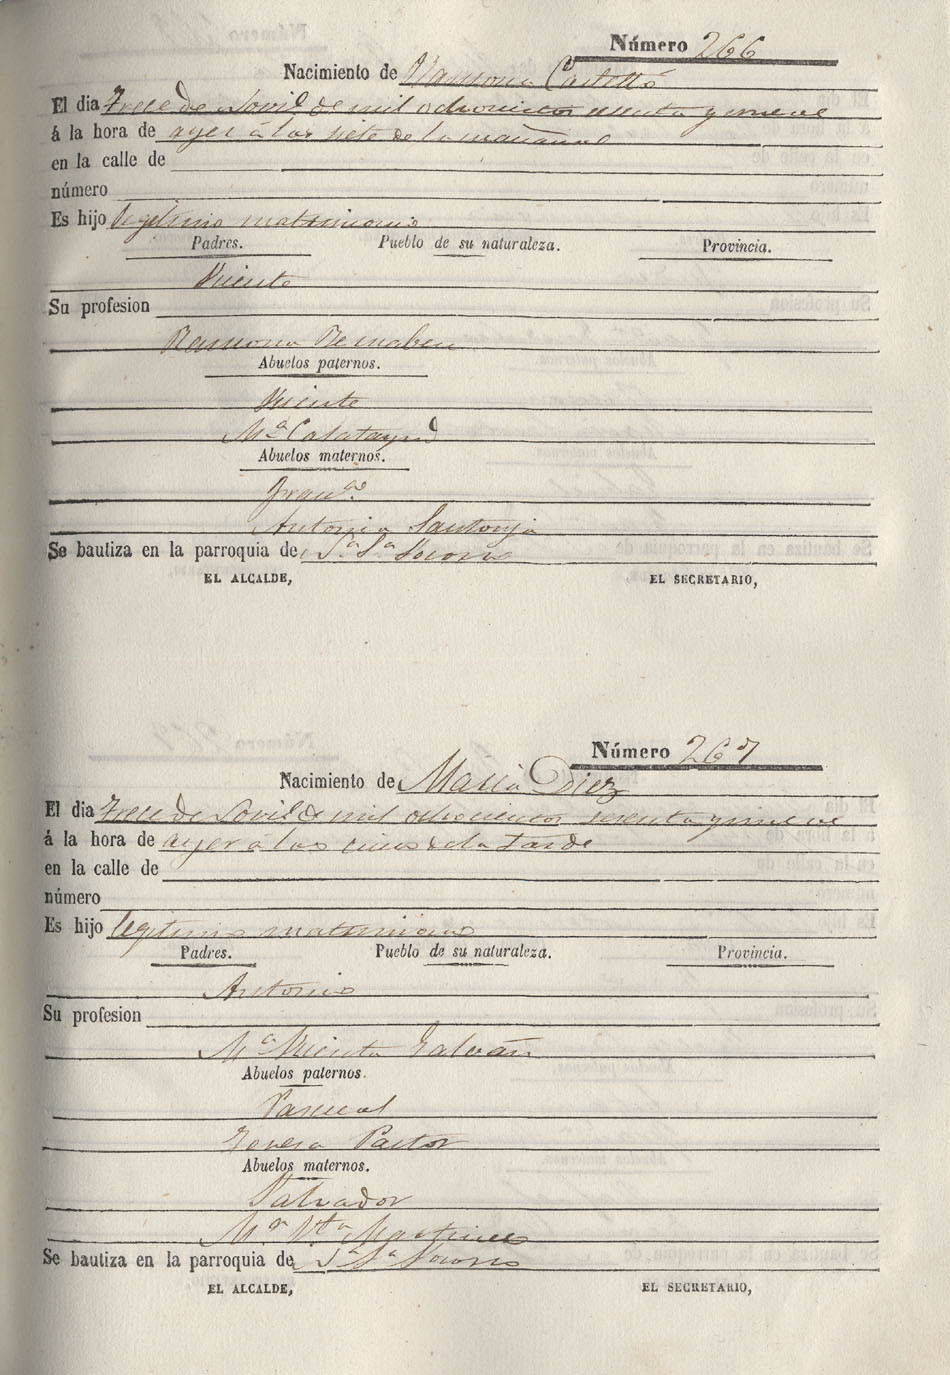 Número 266
Nacimiento de Ramona Castelló
El dia Trece de Abril de mil ochocientos sesenta y nueve
á la hora de ayer á las siete de la mañana
en la calle de
número
Es hijo legitimo matrimonio
Padres. Pueblo de su naturaleza. Provincia.
Vicente
Su profesion
Ramona Bernabeu
Abuelos paternos.
Vicente
Mª Calatayud
Abuelos maternos.
Franco.
Antonia Santonja
Se bautiza en la parroquia de Sª Sª Socorro
EL ALCALDE, EL SECRETARIO,
Número 267
Nacimiento de Maria Diez
El dia Trece de Abril de mil ochocientos sesenta y nueve
á la hora de ayer á las cinco de la tarde
en la calle de
número
Es hijo legitimo matrimonio
Padres. Pueblo de su naturaleza. Provincia.
Antonio
Su profesion
Mª Vicenta Galvañ
Abuelos paternos.
Pascual
Teresa Pastor
Abuelos maternos.
Salvador
Mª Vtª Martinez
Se bautiza en la parroquia de Sª Sª Socorro
EL ALCALDE, EL SECRETARIO,